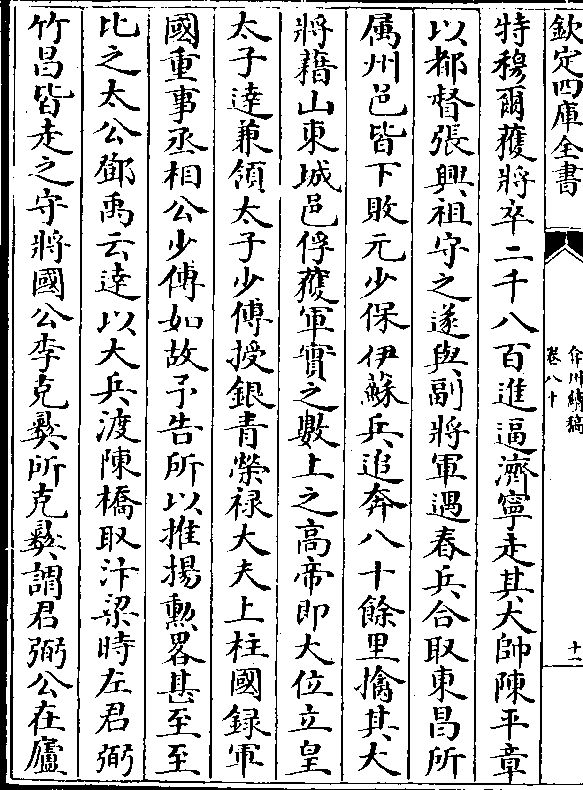 欽定四庫全書
弇州續稿
卷八十
十一
特穆爾獲將卒二千八百進逼濟寧走其大帥陳平章
以都督張興祖守之遂與副將軍遇春兵合取東昌所
属州邑皆下敗元少保伊蘇兵追奔八十餘里擒其大
將藉山東城邑俘獲軍實之數上之高帝即大位立皇
太子達兼領太子少傅授銀青榮禄大夫上柱國録軍
國重事丞相公少傅如故予告所以推揚勲畧甚至至
比之太公鄧禹云達以大兵渡陳橋取汴梁時左君弼
竹昌皆走之守將國公李克彝所克彝謂君弼公在廬